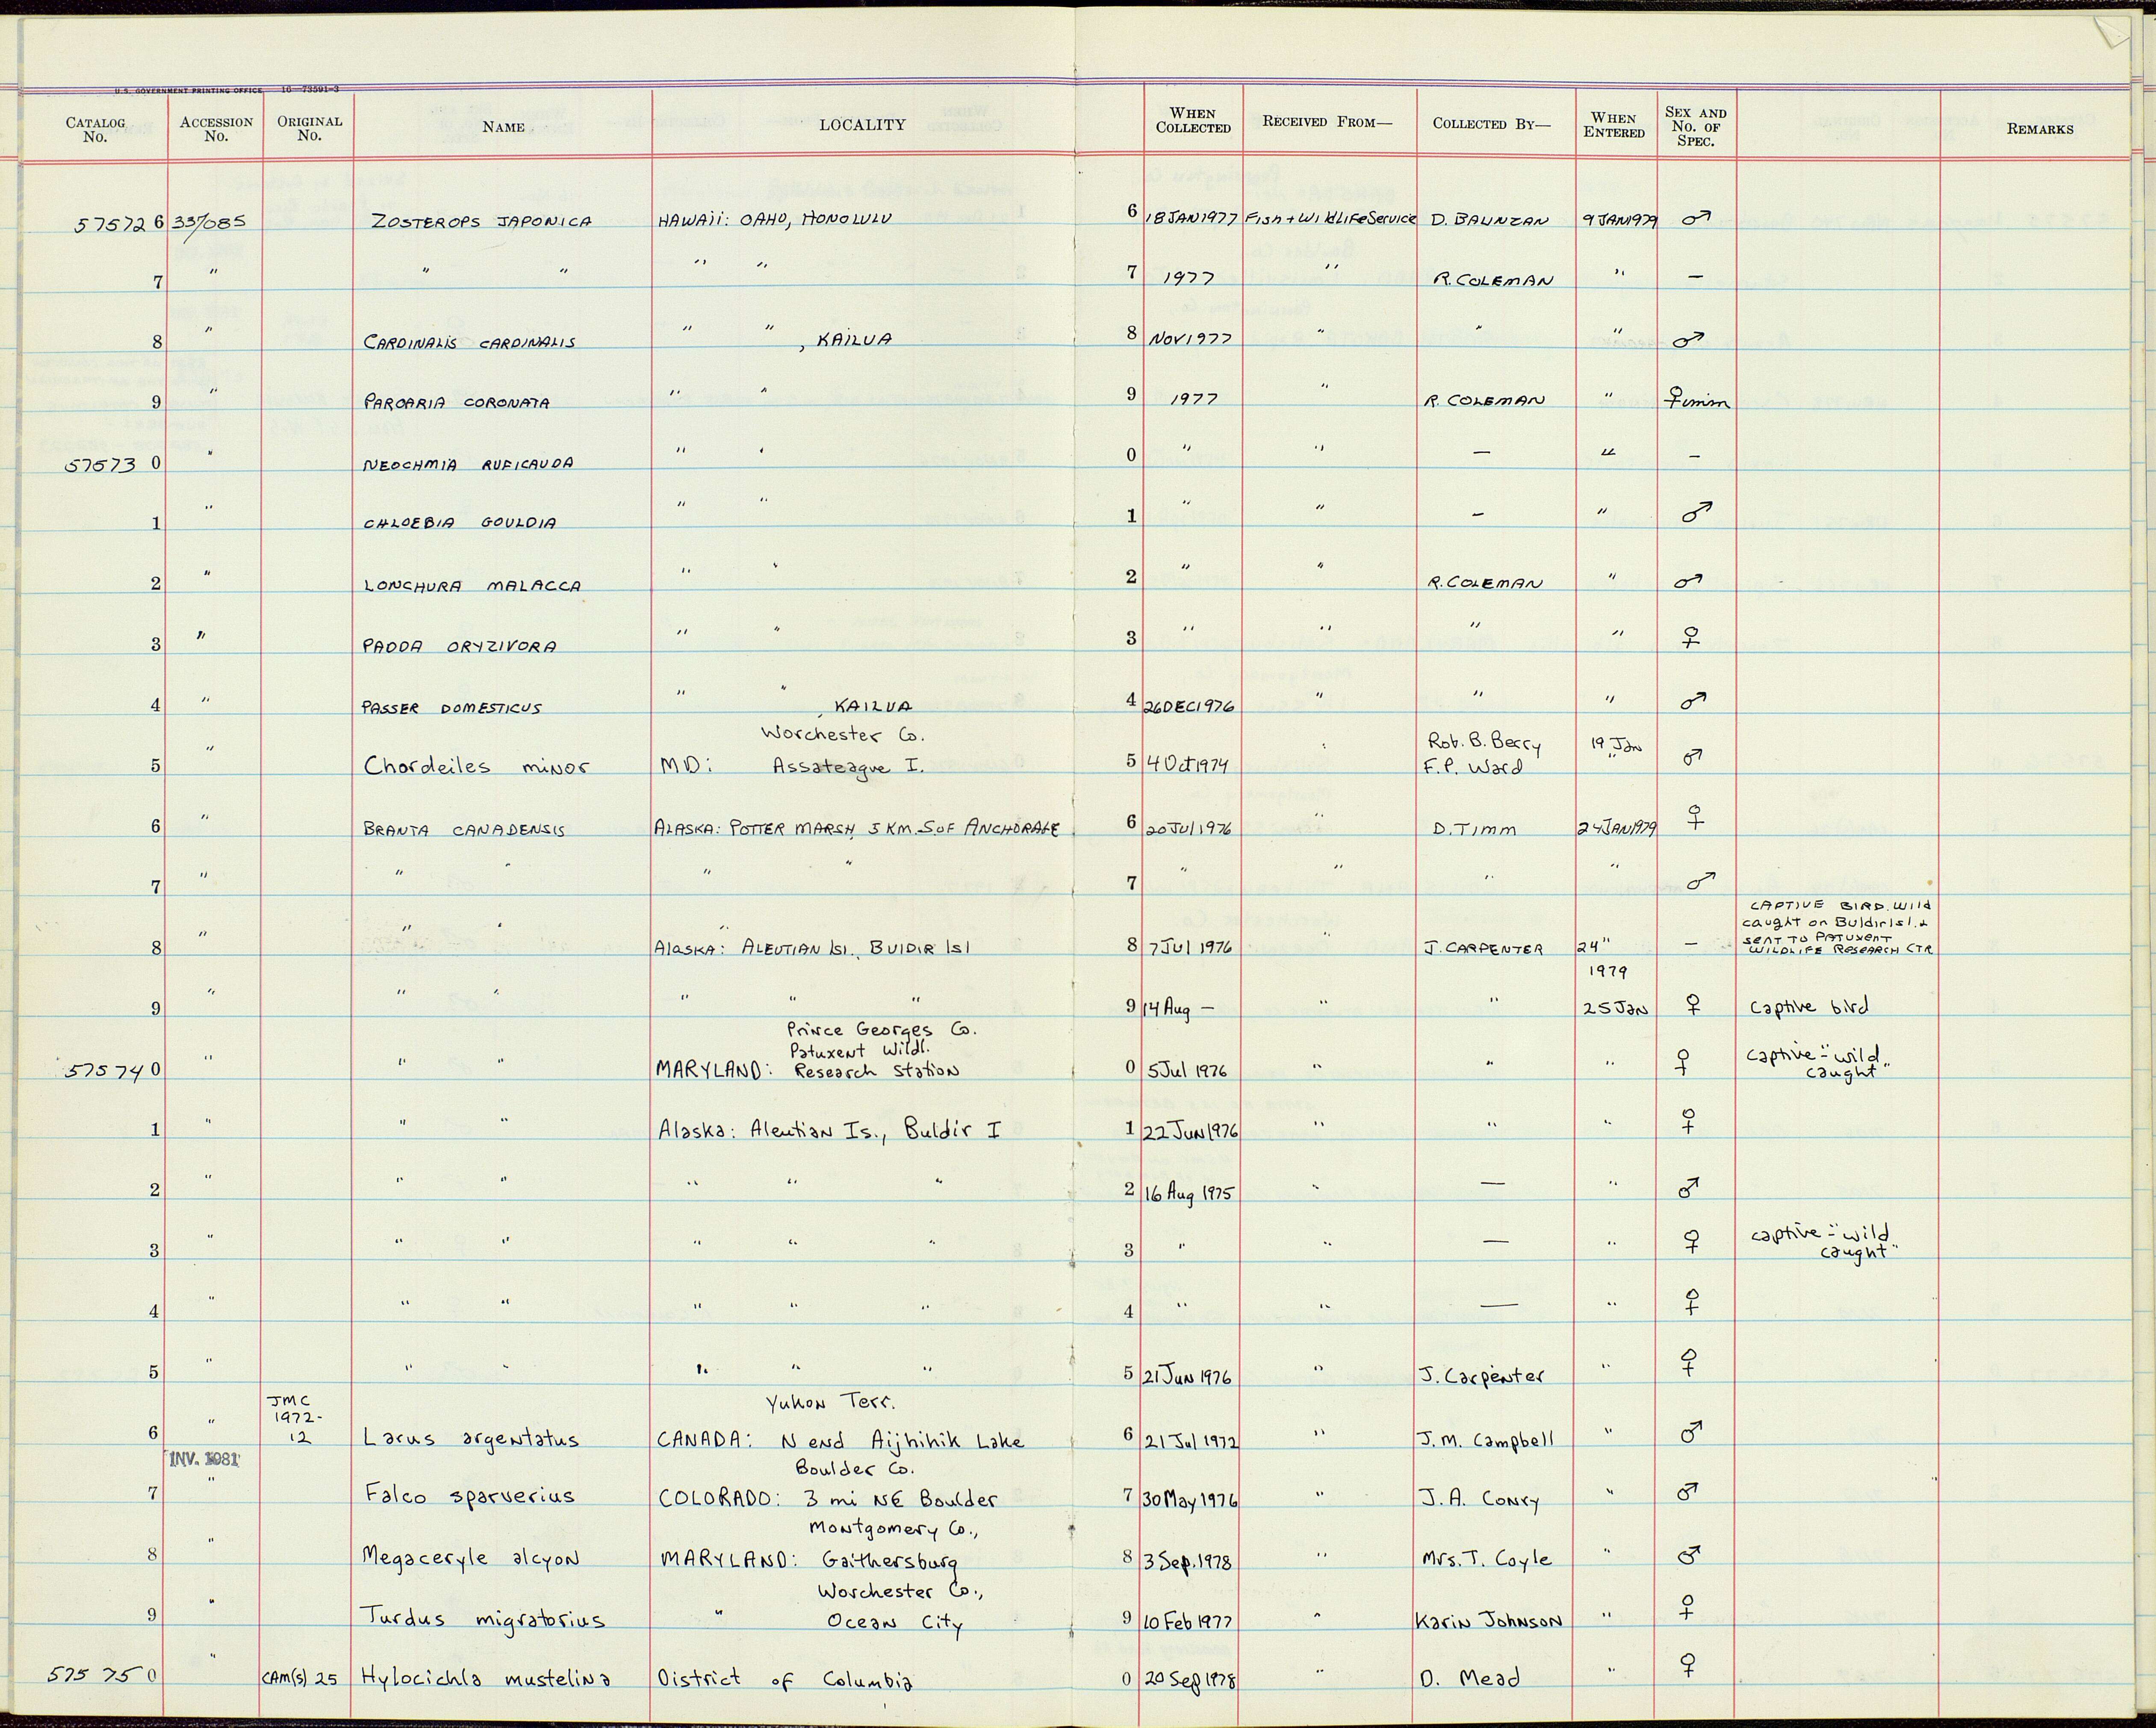 U.S. GOVERNMENT PRINTING OFFICE 16—73591-3
CATALOG No. ACCESSION No. ORIGINAL No. NAME LOCALITY WHEN COLLECTED RECEIVED FROM— COLLECTED BY— WHEN ENTERED SEX AND No. OF SPEC. REMARKS
575726 337085 ZOSTEROPS JAPONICA HAWAII: OAHO, HONOLULU 6 18JAN1977 Fish+WildLifeService D. BAUNZAN 9JAN1979 ♂
7 " " " " " 7 1977 " R.COLEMAN " —
8 " CARDINALIS CARDINALIS " " , KAILUA 8 NOV1977 " " " ♂
9 " PAROARIA CORONATA " " 9 1977 " R. COLEMAN " ♀imm
575730 " NEOCHMIA RUFICAUDA " " 0 " " — " —
1 " CHLOEBIA GOULDIA " " 1 " " — " ♂
2 " LONCHURA MALACCA " " 2 " " R.COLEMAN " ♂
3 " PADDA ORYZIVORA " " 3 " " " " ♀
4 " PASSER DOMESTICUS " " , KAILUA 4 26DEC1976 " " " ♂
Worchester Co.
5 " Chordeiles minor MD: Assateague I. 5 4Oct1974 " Rob. B. Berry F.P. Ward 19 Jan " ♂
6 " BRANTA CANADENSIS ALASKA: POTTER MARSH, 5 KM. S OF ANCHORAGE 6 20Jul1976 " D. TIMM 24JAN1979 ♀
7 " " " " " 7 " " " " ♂
8 " " " " Alaska: ALEUTIAN Isl., BUlDIR Isl 8 7Jul 1976 " J. CARPENTER 24" — CAPTIVE BIRD. Wild
caught on Buldir Isl. &
SENT TO PATUXENT
WILDLIFE RESEARCH CTR
1979
9 " " " " " " 9 14 Aug — " " 25 Jan ♀ Captive bird
Prince Georges Co.
Patuxent Wildl.
575740 " " " MARYLAND: Research Station 0 5Jul 1976 " " " ♀ captive - "wild
caught"
1 " " " Alaska: Aleutian Is., Buldir I 1 22Jun1976 " " " ♀
2 " " " " " " 2 16 Aug 1975 " — " ♂
3 " " " " " " 3 " " — " ♀ captive - "wild
caught"
4 " " " " " " 4 " " — " ♀
5 " " " " " " 5 21Jun 1976 " J. Carpenter " ♀
JMC
1972-
12
Yukon Terr.
6 " Larus argentatus CANADA: N end Aijhihik Lake 6 21 Jul 1972 " J.M. Campbell " ♂
INV. 1981
Boulder Co.
7 " Falco sparverius COLORADO: 3 mi NE Boulder 7 30May1976 " J.A. Conry " ♂
Montgomery Co.,
8 " Megaceryle alcyon MARYLAND: Gaithersburg 8 3Sep.1978 " Mrs. T. Coyle " ♂
Worchester Co.,
9 " Turdus migratorius " Ocean City 9 10 Feb 1977 " Karin Johnson " ♀
575750 " CAM(S) 25 Hylocichla mustelina District of Columbia 0 20 Sep1978 " D. Mead " ♀